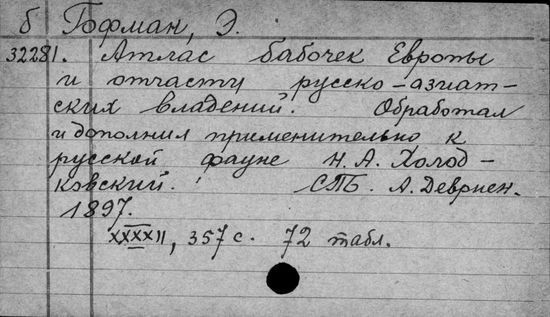 б Гофман, Э.
32281. Атлас бабочек Европы
и отчасти русско-азиат-
ских владений. Обработал
и дополнил применительно к
русской фауне Н. А. Холод-
ковский. СПБ. А. Девриен.
1897.
XXXXII, 357 с. 72 табл.